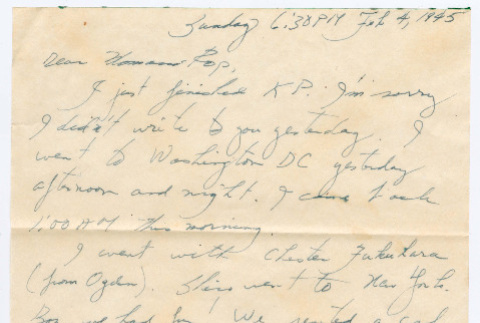 Sunday 6:30PM Feb 4, 1945
Dear Mom and Pop,
I just finished KP. I'm sorry
I didn't write to you yesterday. I
went to Washington DC yesterday
afternoon and night. I came back
1:00 AM this morning.
I went with Chester Fukuhara
(from Ogden). went to New York.
Boy we had fun! We rented a